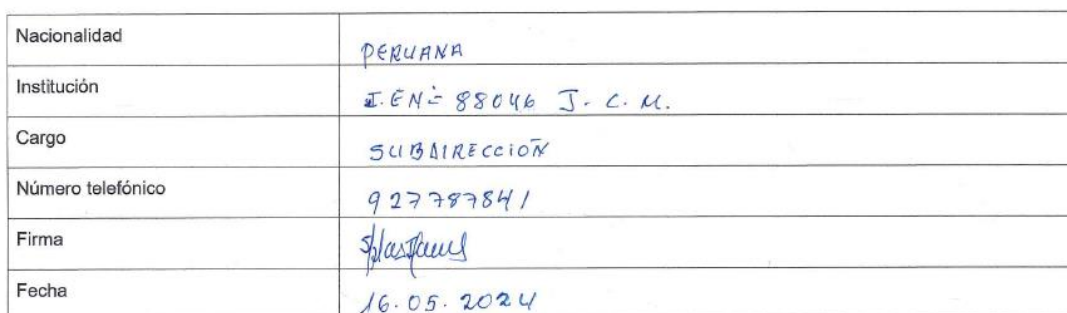 Nacionalidad PERUANA
Institución I.E Nº 88046 J. C. M.
Cargo SUBDIRECCIÓN
Número telefónico 927787841
Firma
Fecha 16.05.2024